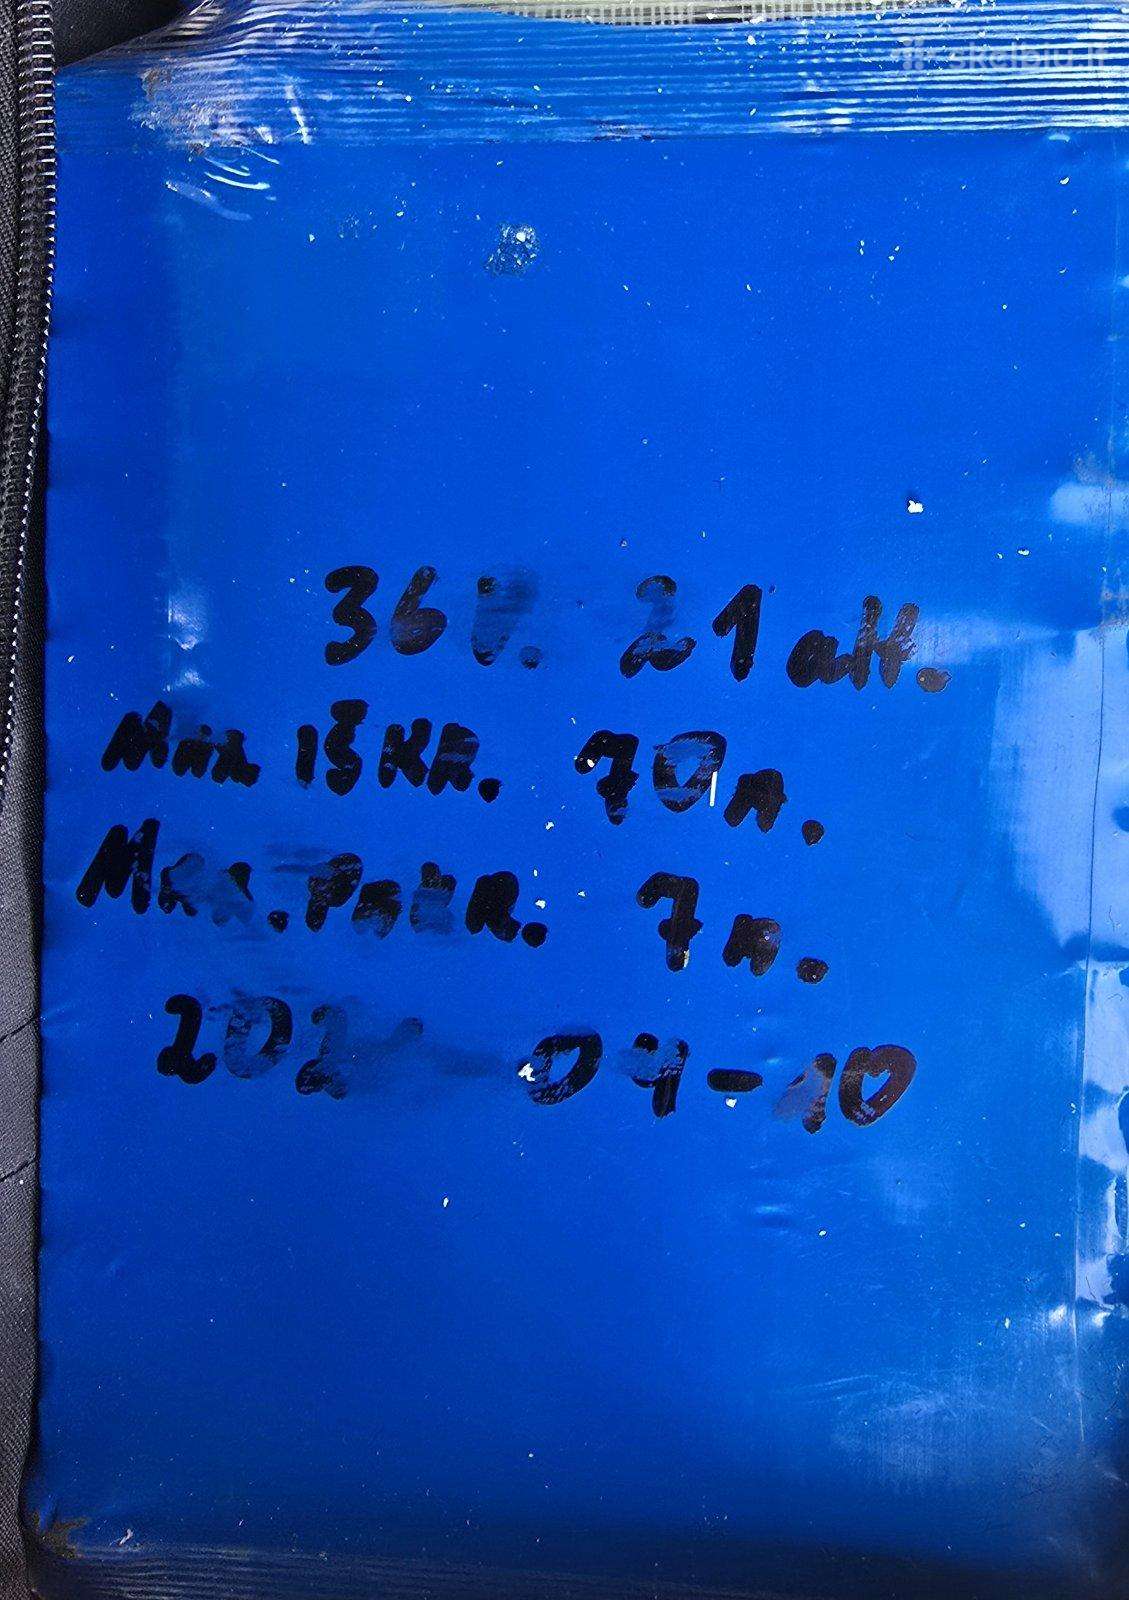 skelbiu.lt
36%. 21 att.
Max IŠKR. 70 A.
Max. PAKR. 7 A.
202 - 04-10